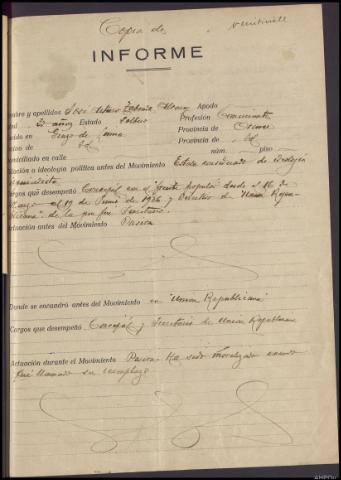 Copia de
veintisiete
INFORME
mbre y apellidos José Arturo Apodo
dad 20 años Estado soltero Profesión Comerciante
cido en Provincia de
cino de id Provincia de id
omiciliado en calle núm. piso
filiación e ideología política antes del Movimiento Estaba de
Cargos que desempeñó Concejal en el "frente popular" desde el 16 de
Marzo al 19 de Junio de 1936 y Directivo de Unión Repu-
blicana" de la que fué Secretario.
Actuación antes del Movimiento Pasiva
Donde se encuadró antes del Movimiento en "Unión Republicana"
Cargos que desempeñó Concejal y Secretario de Unión Republicana
Actuación durante el Movimiento Pasiva. Ha sido movilizado cuando
fué llamado su reemplazo